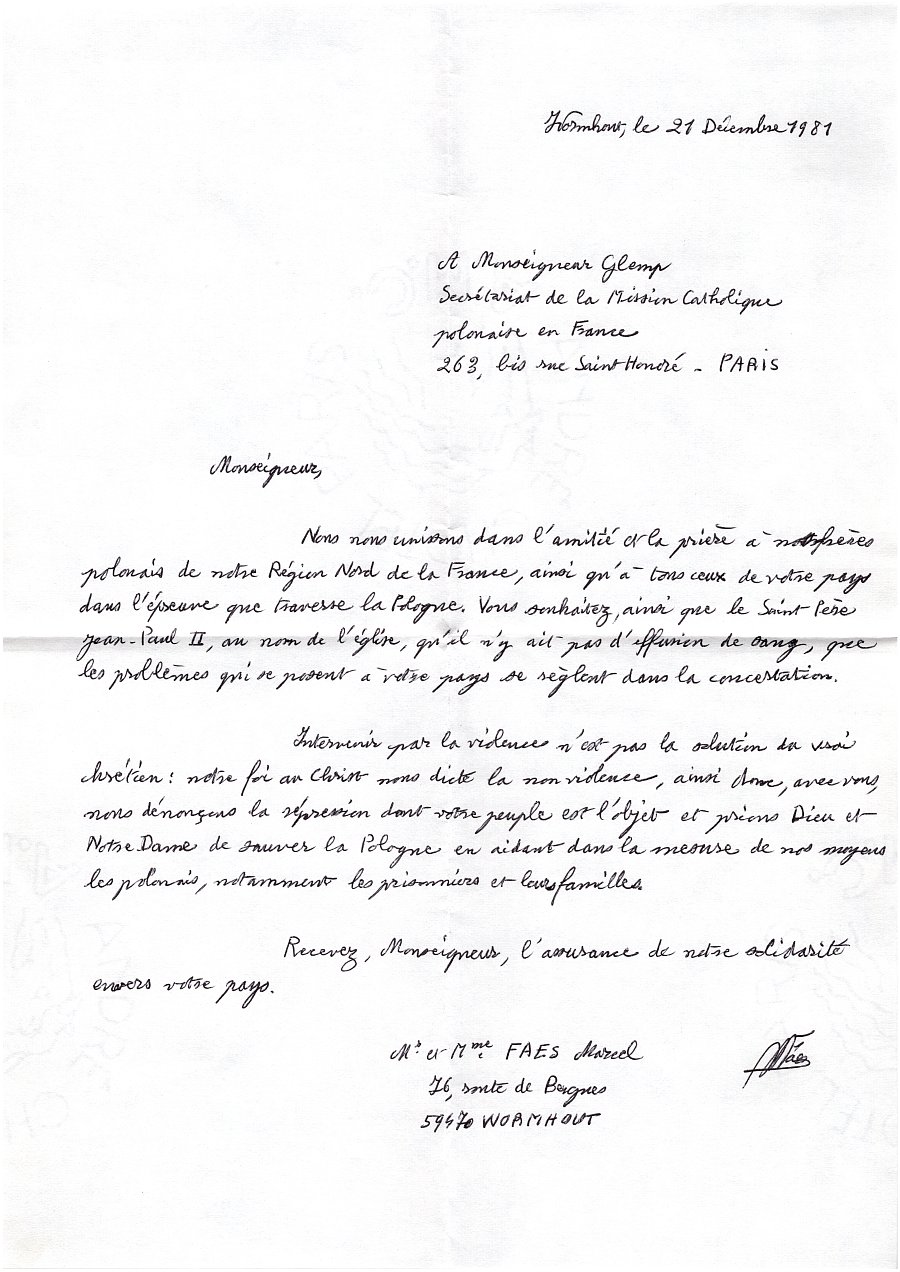 Wormhout, le 21 Décembre 1981
A Monseigneur Glemp
Secrétariat de la Mission Catholique
polonaise en France
263, bis rue Saint Honoré - PARIS
Monseigneur,
Nous nous unissons dans l'amitié et la prière à nos frères
polonais de notre Région Nord de la France, ainsi qu'à tous ceux de votre pays
dans l'épreuve que traverse la Pologne. Vous souhaitez, ainsi que le Saint Père
Jean-Paul II, au nom de l'église, qu'il n'y ait pas d'effusion de sang, que
les problèmes qui se posent à votre pays se règlent dans la concertation.
Intervenir par la violence n'est pas la solution du vrai
chrétien : notre foi au Christ nous dicte la non violence, ainsi donc, avec vous,
nous dénonçons la répression dont votre peuple est l'objet et prions Dieu et
Notre-Dame de sauver la Pologne en aidant dans la mesure de nos moyens
les polonais, notamment les prisonniers et leurs familles.
Recevez, Monseigneur, l'assurance de notre solidarité
envers votre pays.
Mr et Mme FAES Marcel
76, route de Bergues
59470 WORMHOUT
MFaes